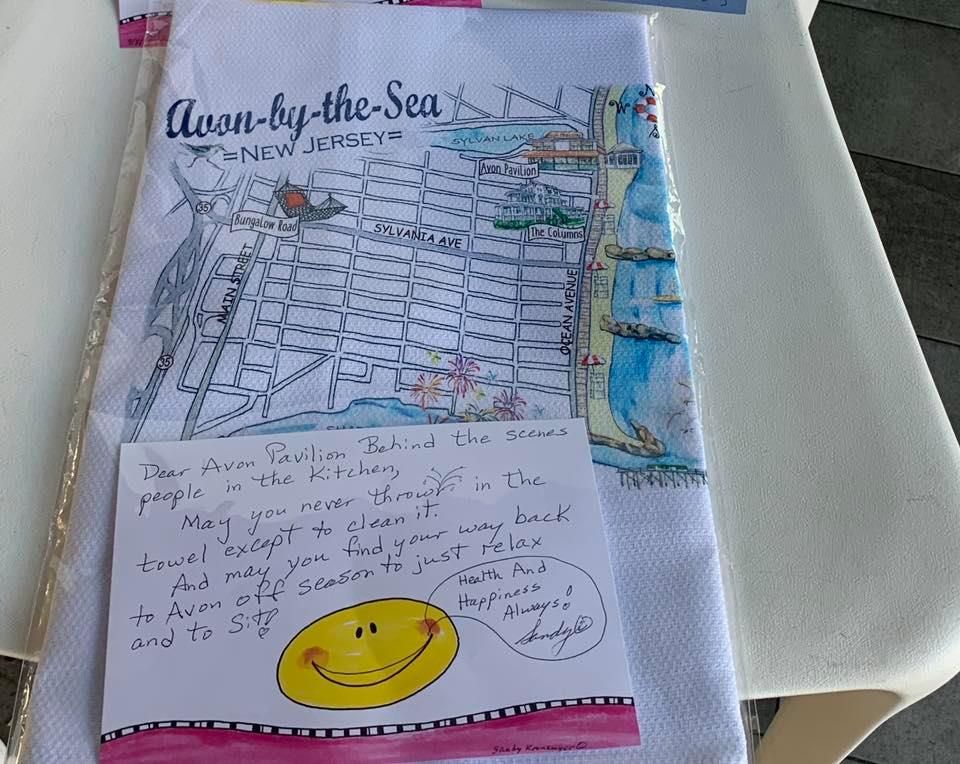 Avon-by-the-Sea
=NEW JERSEY=
N
W
S
SYLVAN LAKE
Avon Pavilion
35
Bungalow Road
The Columns
SYLVANIA AVE
MAIN STREET
OCEAN AVENUE
35
Dear Avon Pavilion Behind the scenes
people in the Kitchen,
May you never throw in the
towel except to clean it.
And may you find your way back
to Avon off season to just relax
and to Sit!
Health And
Happiness
Always!
Sandy
Sandy